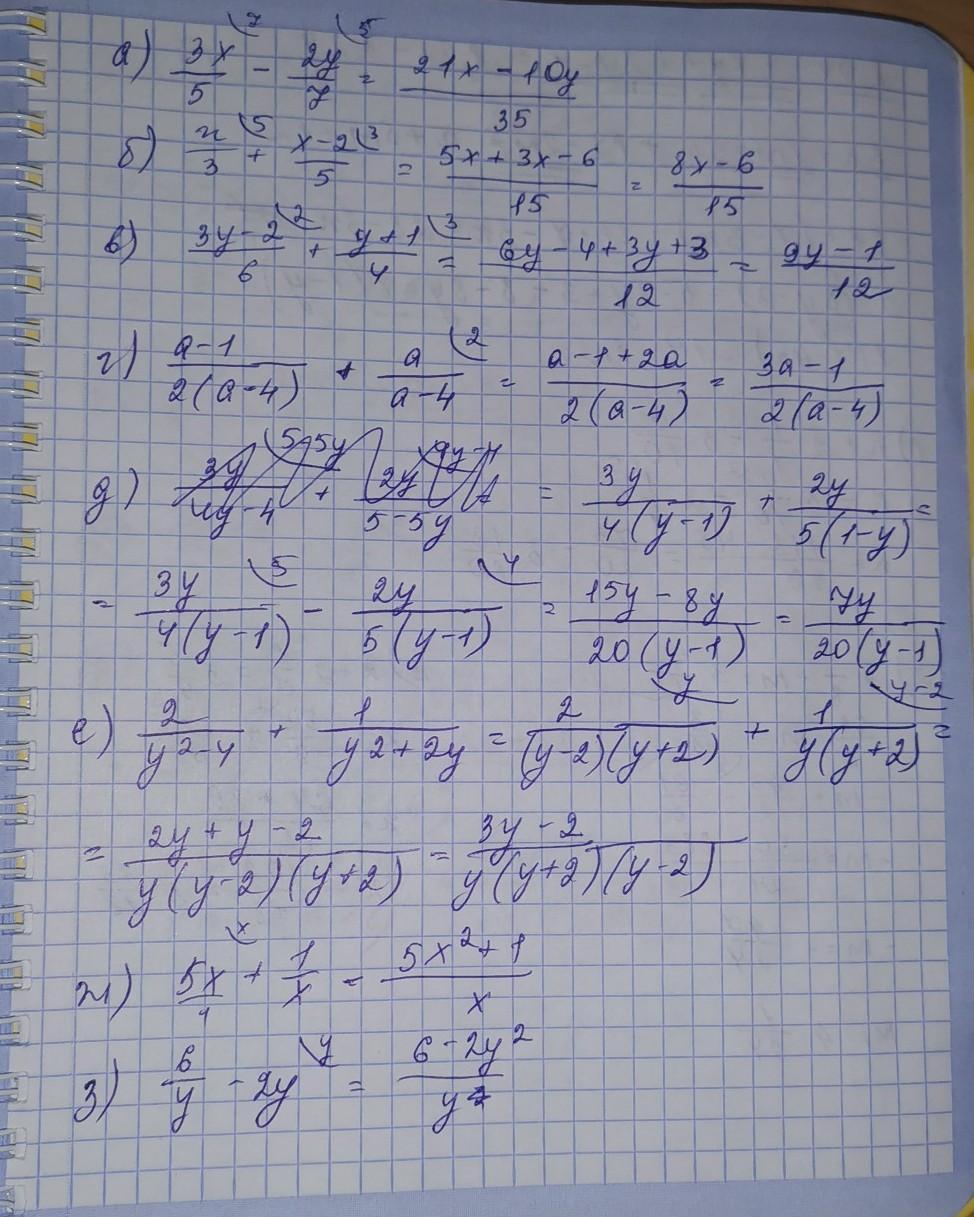 а) 3x/5 ⁷ - 2y/7 ⁵ = 21x - 10y/35
б) x/3 ⁵ + x-2/5 ³ = 5x + 3x - 6/15 = 8x - 6/15
в) 3y - 2/6 ² + y + 1/4 ³ = 6y - 4 + 3y + 3/12 = 9y - 1/12
г) a - 1/2(a - 4) + a/a - 4 ² = a - 1 + 2a/2(a - 4) = 3a - 1/2(a - 4)
д) 3y/4y - 4 + 2y/5 - 5y = 3y/4(y - 1) + 2y/5(1 - y) =
= 3y/4(y - 1) ⁵ - 2y/5(y - 1) ⁴ = 15y - 8y/20(y - 1) = 7y/20(y - 1)
е) 2/y² - 4 + 1/y² + 2y = 2/(y - 2)(y + 2) ʸ + 1/y(y + 2) ʸ⁻² =
= 2y + y - 2/y(y - 2)(y + 2) = 3y - 2/y(y + 2)(y - 2)
ж) 5x/1 ˣ + 1/x = 5x² + 1/x
з) 6/y - 2y ʸ = 6 - 2y²/y